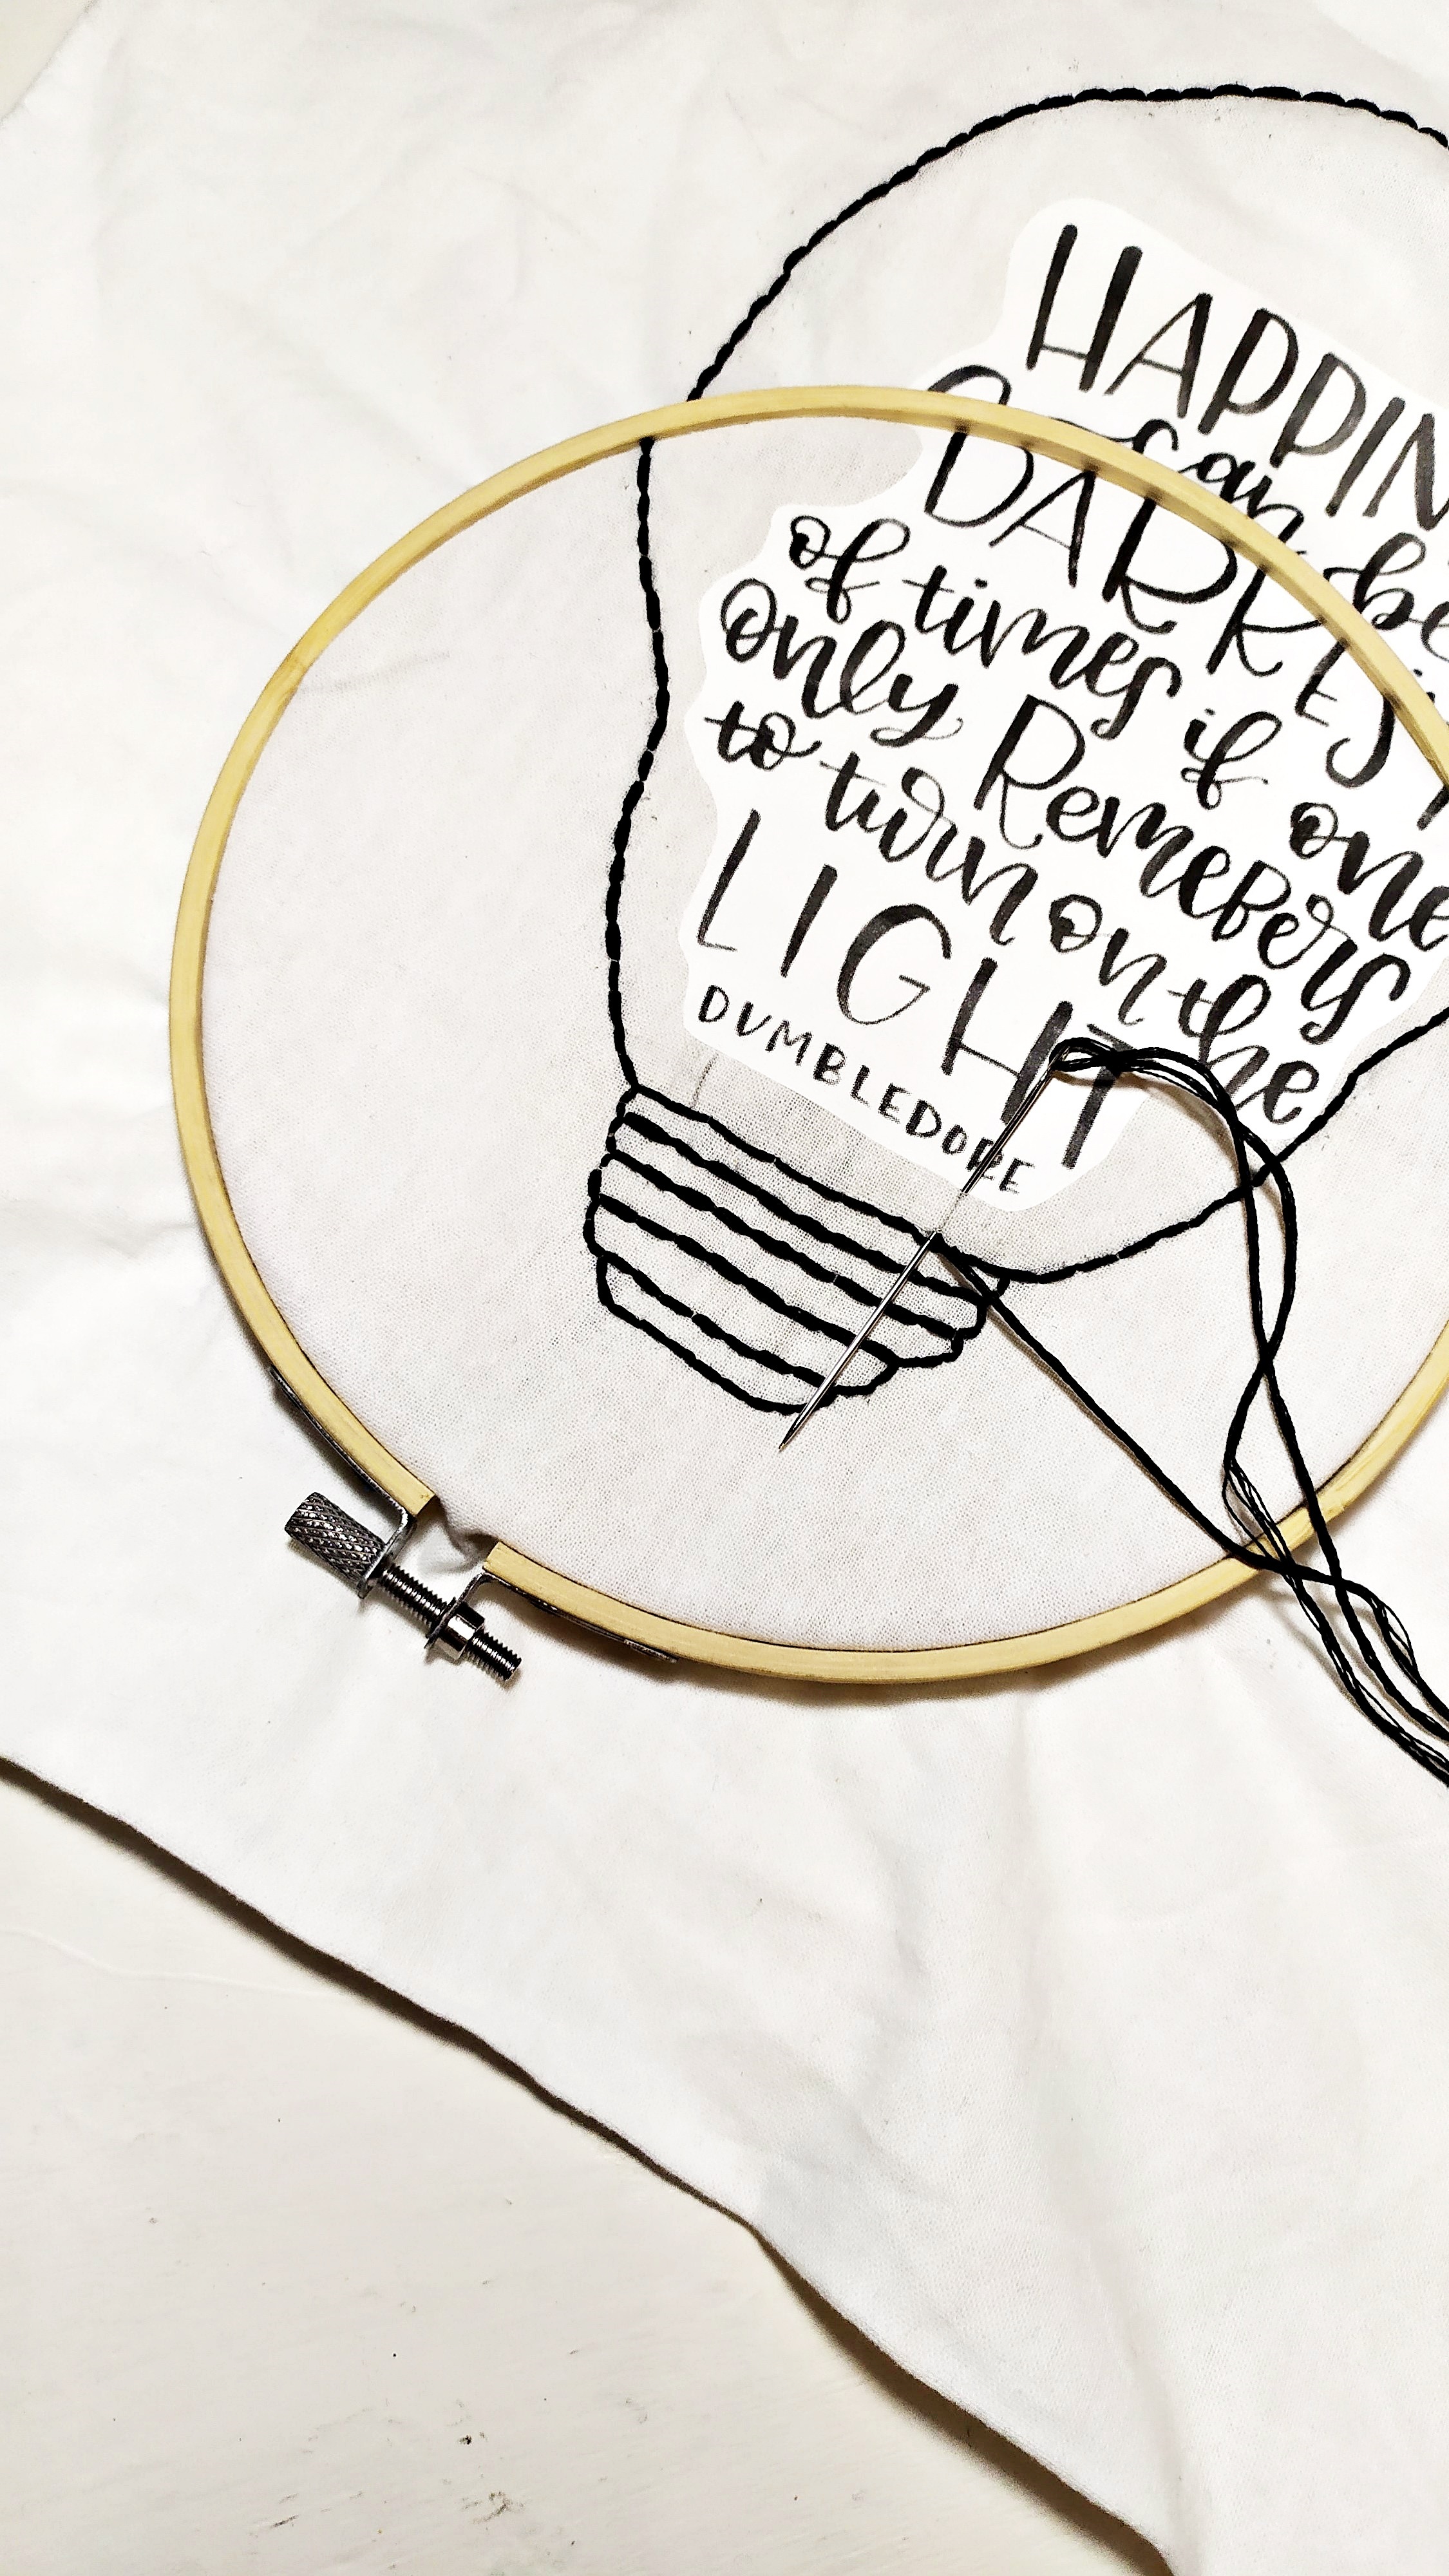 HAPPIN
can be
DARKES
of times if one
only Remebers
to turn on the
LIGHT
DUMBLEDORE